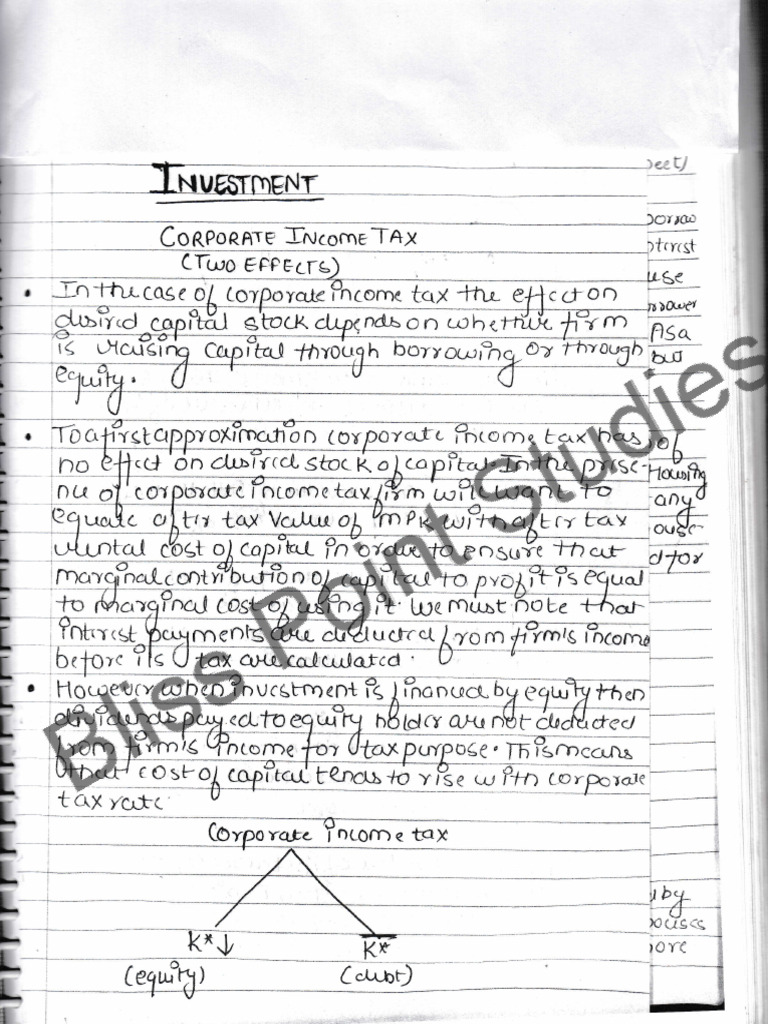 INVESTMENT
CORPORATE INCOME TAX
(TWO EFFECTS)
• In the case of corporate income tax the effect on
desired capital stock depends on whether firm
is raising capital through borrowing or through
equity.
• To a first approximation corporate income tax has
no effect on desired stock of capital. In the prese-
nce of corporate income tax firm will want to
equate after tax value of MPK with after tax
rental cost of capital in order to ensure that
marginal contribution of capital to profit is equal
to marginal cost of using it. We must note that
interest payments are deducted from firm's income
before its tax are calculated.
• However when investment is financed by equity then
dividends payed to equity holder are not deducted
from firm's income for tax purpose. This means
that cost of capital tends to rise with corporate
tax rate.
Corporate income tax
K* ↓ K̅*
(equity) (debt)
Bliss Point Studies
use
Asa
but
of
Housing
any
by